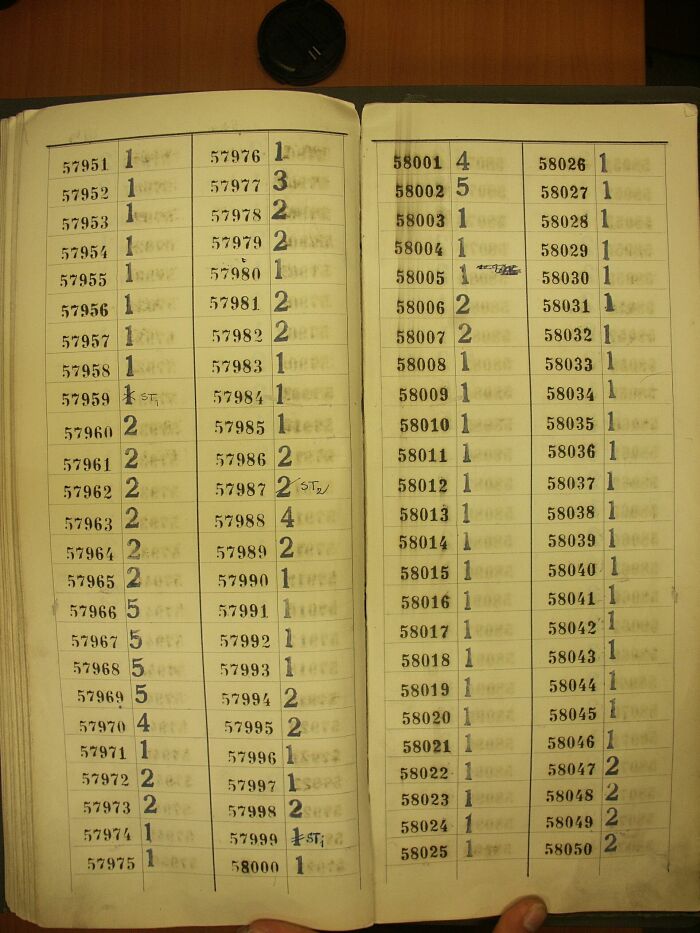 57951 1
57952 1
57953 1
57954 1
57955 1
57956 1
57957 1
57958 1
57959 1 ST1
57960 2
57961 2
57962 2
57963 2
57964 2
57965 2
57966 5
57967 5
57968 5
57969 5
57970 4
57971 1
57972 2
57973 2
57974 1
57975 1
57976 1
57977 3
57978 2
57979 2
57980 1
57981 2
57982 2
57983 1
57984 1
57985 1
57986 2
57987 2 ST2
57988 4
57989 2
57990 1
57991 1
57992 1
57993 1
57994 2
57995 2
57996 1
57997 1
57998 2
57999 1 ST1
58000 1
58001 4
58002 5
58003 1
58004 1
58005 1
58006 2
58007 2
58008 1
58009 1
58010 1
58011 1
58012 1
58013 1
58014 1
58015 1
58016 1
58017 1
58018 1
58019 1
58020 1
58021 1
58022 1
58023 1
58024 1
58025 1
58026 1
58027 1
58028 1
58029 1
58030 1
58031 1
58032 1
58033 1
58034 1
58035 1
58036 1
58037 1
58038 1
58039 1
58040 1
58041 1
58042 1
58043 1
58044 1
58045 1
58046 1
58047 2
58048 2
58049 2
58050 2